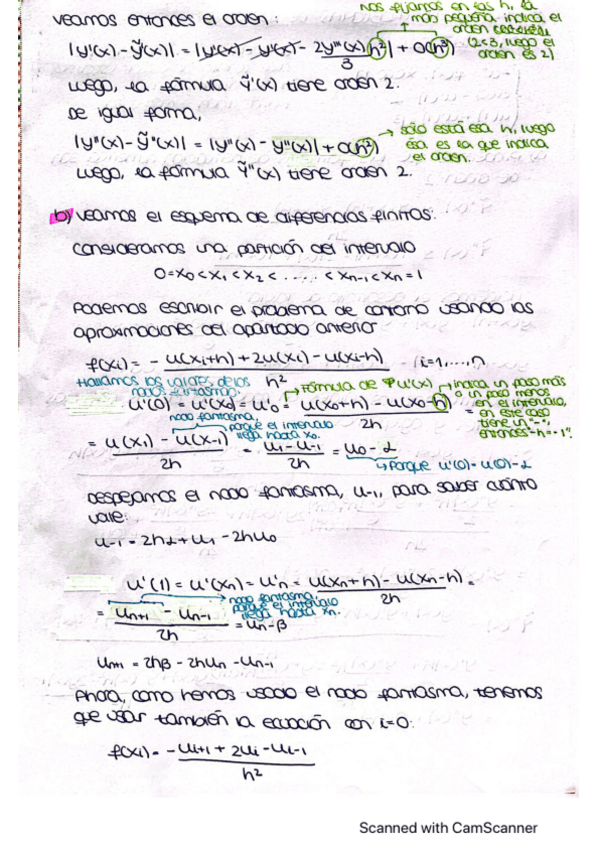 Nos fijamos en las h, la
más pequeña indica el
orden
(2<3, luego el
orden es 2)
Veamos entonces el orden:
|y'(x)-ỹ'(x)| = |y'(x) - y'(x) - 2y'''(x)/3 h²| + O(h³)
Luego, la fórmula ỹ'(x) tiene orden 2.
De igual forma,
|y''(x)-ỹ''(x)| = |y''(x) - y''(x)| + O(h²) → solo está esa h, luego
ésa es la que indica
el orden.
Luego, la fórmula ỹ''(x) tiene orden 2.
b) Veamos el esquema de diferencias finitas:
Consideramos una partición del intervalo
0=x₀<x₁<x₂<.....<xn-1<xn=1
Podemos escribir el problema de contorno usando las
aproximaciones del apartado anterior
f(xi) = - u(xi+h) + 2u(xi) - u(xi-h) / h² (i=1,...,n
Hallamos los valores de los
nodos fantasma:
Fórmula de u'(x)
indica un paso más
o un paso menos
en el intervalo,
en este caso
tiene un "-",
entonces "-h=-1".
u'(0) = u'(x₀) = u'₀ = u(x₀+h) - u(x₀-h) / 2h =
nodo fantasma,
porque el intervalo
llega hasta x₀.
= u(x₁) - u(x-₁) / 2h = u₁-u-₁ / 2h = u₀-α
→ Porque u'(0)=u(0)-α
Despejamos el nodo fantasma, u-₁, para saber cuánto
vale:
u-₁ = 2hα + u₁ - 2hu₀
u'(1) = u'(xn) = u'n = u(xn+h) - u(xn-h) / 2h =
→ nodo fantasma,
porque el intervalo
llega hasta xn.
= un+1 - un-1 / 2h = un-β
un+1 = 2hβ - 2hun - un-1
Ahora, como hemos usado el nodo fantasma, tenemos
que usar también la ecuación con i=0:
f(xi) = -ui+1 + 2ui - ui-1 / h²
Scanned with CamScanner